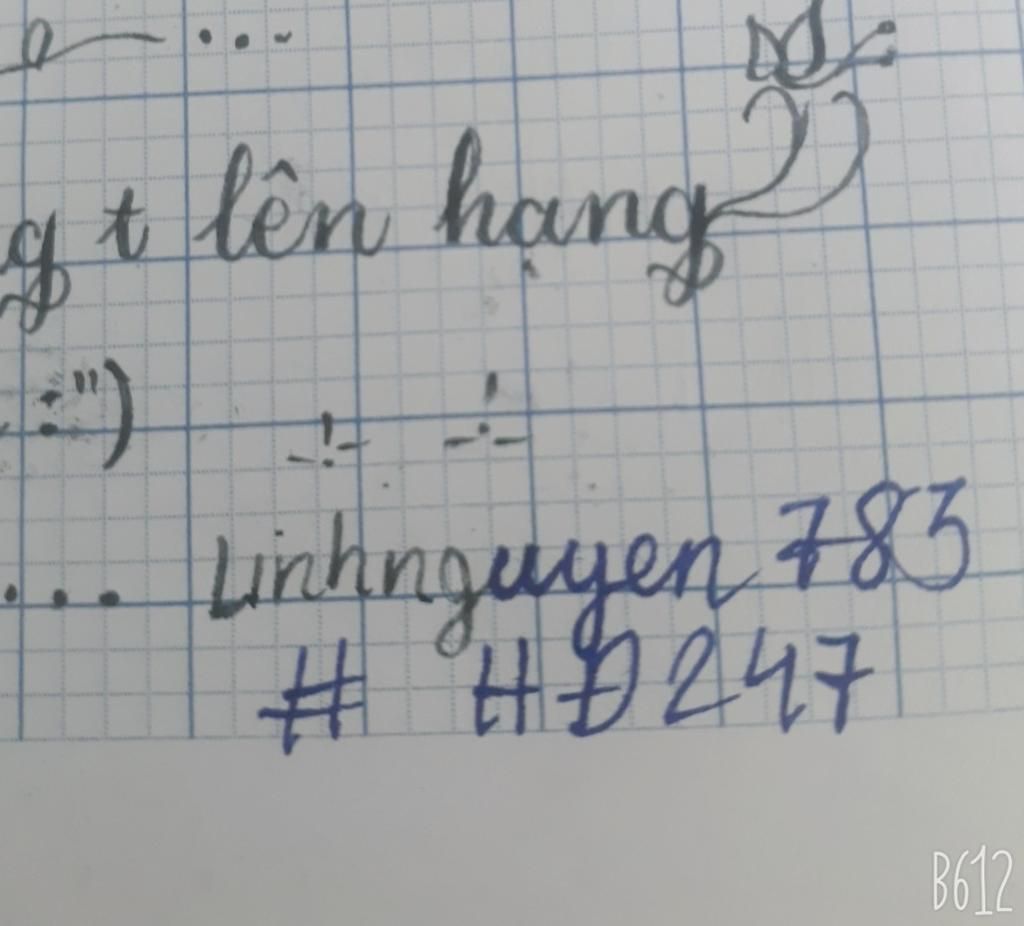 ...
g t lên hạng
:")
-!- -!-
... Linhnguyen 783
# HĐ247
B612